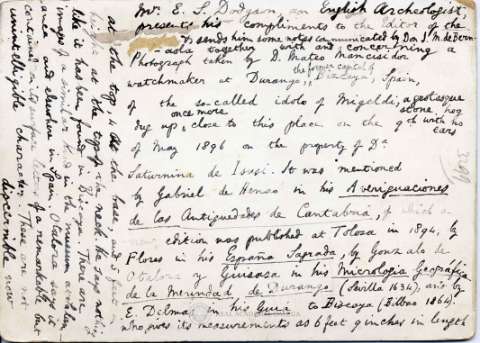 Mr. E. S. Dodgson, an English Archeologist,
presents his compliments to the Editor of the
& sends him some notes communicated by Don J. M. de Bernaola together with and concerning a
photograph taken by D. Mateo Mancisidor
watchmaker at Durango, the former capital of Biscaya, Spain,
of the so-called idolo of Migeldi, a grotesque stone hog with no ears
dug up once more, close to this place on the 9th
of May 1896 on the property of Da
Saturnina de Isasi. It was mentioned
by Gabriel de Henao in his Averiguaciones
de las Antiguedades de Cantabria, of which a
new edition was published at Tolosa in 1894, by
Flores in his España Sagrada, by Gonzalo de
Otalora y Guisasa in his Micrologia Geográfica
de la Merindad de Durango (Sevilla 1634), and by
E. Delmas in his Guia to Biscaya (Bilbao 1864)
who gives its measurements as 6 feet 9 inches in length
at the top, 4 at the base, and 5 feet in
height at the top of the neck. He says nothing
like it had been found in Biscaya. There are
images of similar kind in the museum at
and elsewhere in Spain. Otalora says it
contained on its surface letters of a remarkable but
unintelligible character. These are not
discernible now